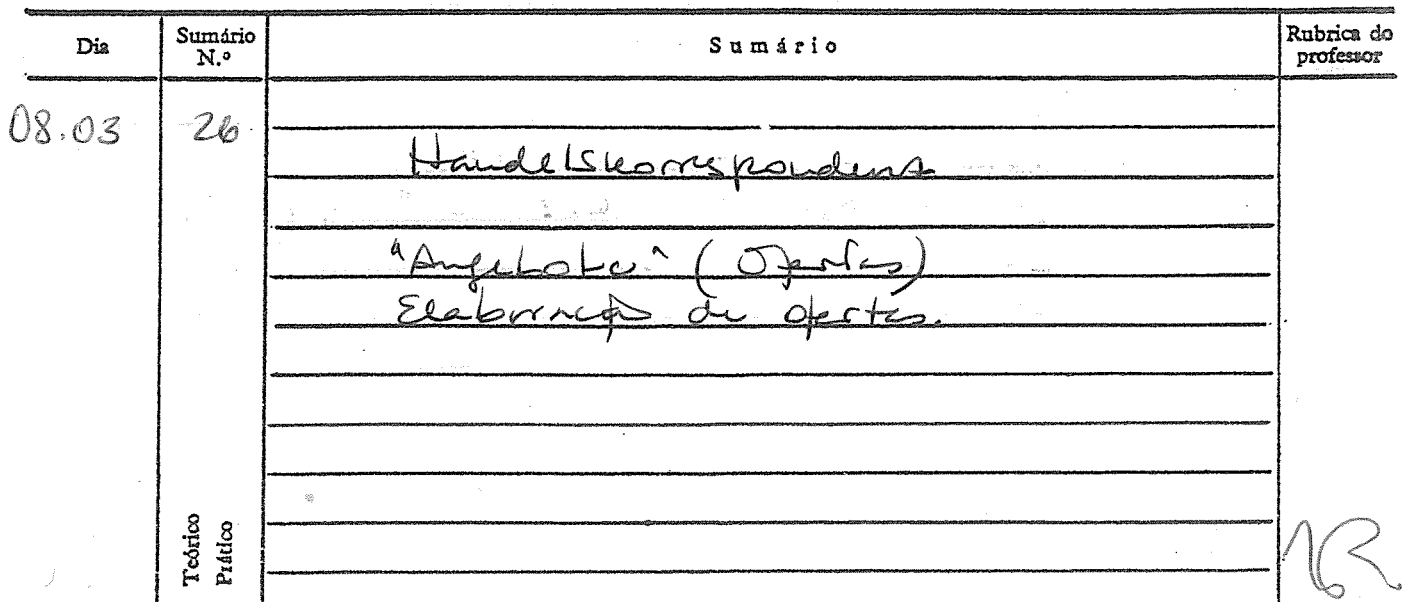 Dia Sumário N.º Sumário Rubrica do professor
08.03 26
Handelskorrespondenz
"Angebote" (Ofertas)
Elaboração de ofertas.
Teórico
Prático